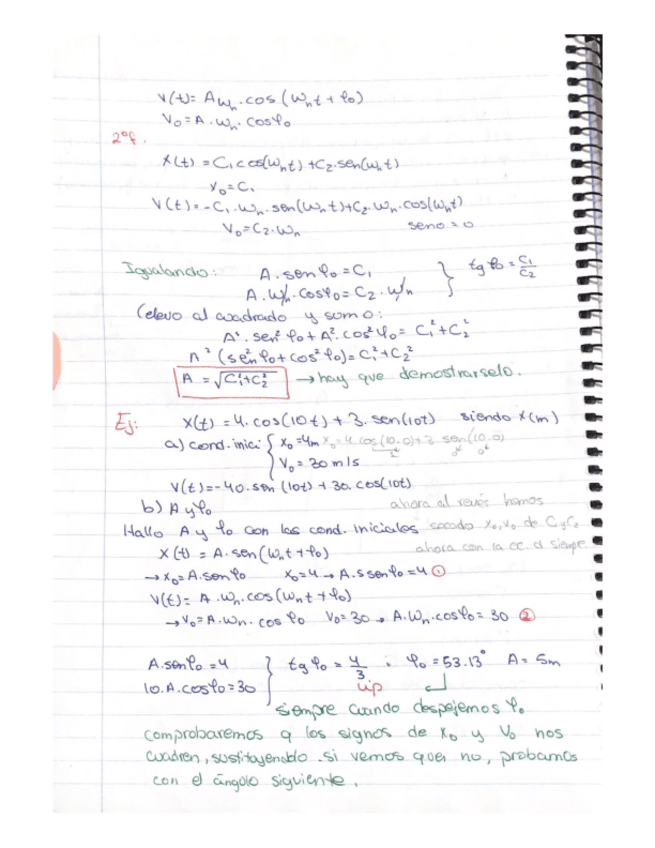 V(t)= A ωn.cos(ωnt+φ0)
V0=A.ωn.cosφ0
2ºf.
X(t) = C1 cos(ωnt) + C2.sen(ωnt)
X0=C1
V(t)=-C1.ωn.sen(ωnt)+C2.ωn.cos(ωnt)
V0=C2.ωn sen0=0
Igualando: A.senφ0=C1 } tgφ0=C1/C2
A.ωn.cosφ0=C2.ωn
Elevo al cuadrado y sumo:
A².sen²φ0+A².cos²φ0=C1²+C2²
A²(sen²φ0+cos²φ0)=C1²+C2²
A=√C1²+C2² → hay que demostrarselo.
Ej: X(t)=4.cos(10t)+3.sen(10t) siendo x(m)
a) cond.inici { X0=4m X0=4 cos(10.0)+3 sen(10.0)
V0=30m/s
V(t)=-40.sen(10t)+30.cos(10t)
b) A y φ0 ahora al revés hemos
Hallo A y φ0 con las cond. iniciales sacado X0,V0 de C1yC2
X(t)=A.sen(ωnt+φ0) ahora con la ec. d siempre
→X0=A.senφ0 X0=4→A.senφ0=4 ①
V(t)=A.ωn.cos(ωnt+φ0)
→V0=A.ωn.cosφ0 V0=30→A.ωn.cosφ0=30 ②
A.senφ0=4 } tgφ0=4/3 ; φ0=53.13° A=5m
10.A.cosφ0=30
siempre cuando despejemos φ0
comprobaremos q los signos de X0 y V0 nos
cuadren, sustituyendolo. si vemos que no, probamos
con el ángulo siguiente.